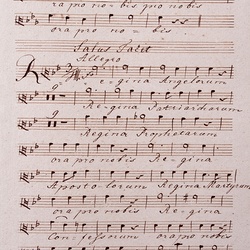 ora pro no- bis pro nobis
ora pro no- bis
Salus Tacet
Allegro
Re- gina Angelorum
ora pro nobis Regina Patriarcharum
ora pro nobis Regina Prophetarum
ora pro nobis Re- gina
Aposto- lorum Regina Martyrum
ora pro nobis Re- gina
Con- fessorum ora pro nobis